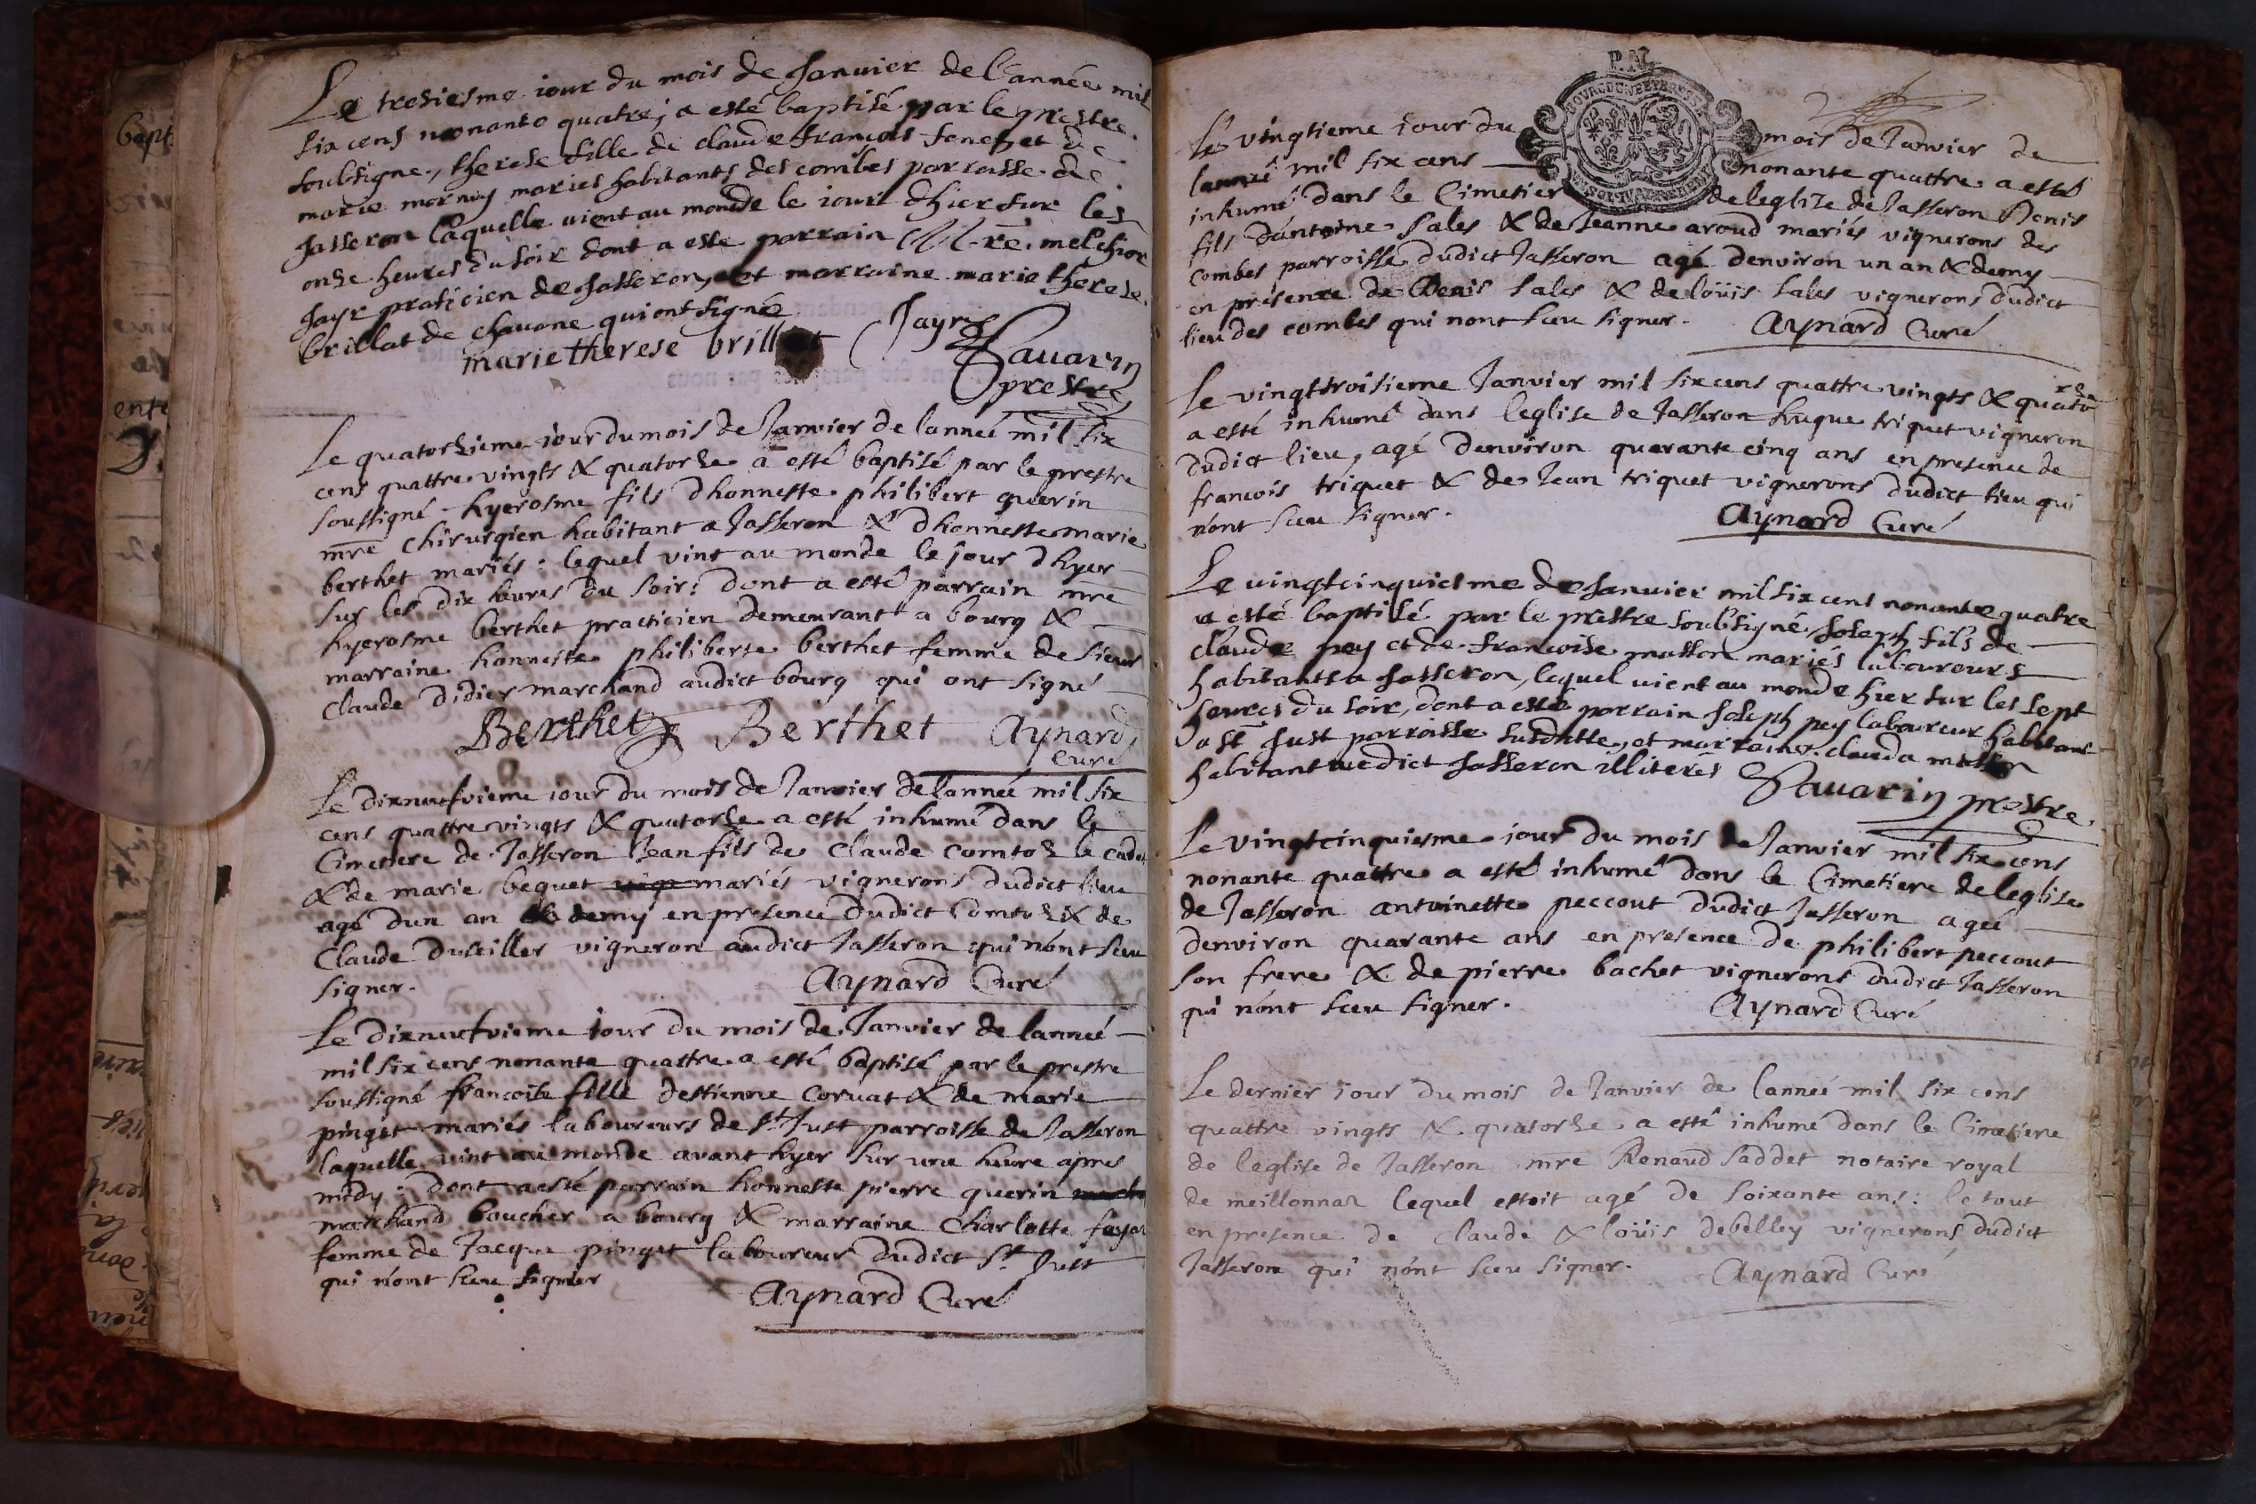 Le tresiesme iour du mois de Janvier de l'année mil
six cens nonante quatre, a esté baptisé par le prestre
soubsigne, therese fille de claude francois fenet et de
marie mornay mariés habitants des combes parroisse de
Jasseron laquelle vient au monde le iour d'hier sur les
onze heures du soir dont a este parrain melchior
Jayr praticien de Jasseron, et marraine marie therese
brillat de chavane qui ont signé
marie therese brillat Jayr
Savarin
prestre
Le quatorzieme iour du mois de Janvier de lanneé mil six
cens quattre vingts & quatorze a esté baptisé par le prestre
soussigné hyerosme fils dhonneste philibert querin
mre chirurgien habitant a Jasseron & dhonneste marie
berthet mariés : lequel vint au monde le jour dhyer
sur les dix heures du soir : dont a esté parrain mre
hyerosme berthet practicien demeurant a bourg &
marraine honneste philiberte berthet femme de sieur
claude didier marchand audict bourg qui ont signé
Berthet Berthet Aynard
Curé
Le dixneufvieme iour du mois de Janvier de lanneé mil six
cens quattre vingts & quatorze a esté inhumé dans le
Cimetiere de Jasseron Jean fils de Claude comtoz le cadet
& de marie bequet mariés vignerons dudict lieu
agé dun an & demy en presence dudict Comtoz & de
Claude duseiller vigneron audict Jasseron qui nont sceu
signer. Aynard Curé
Le dixneufvieme iour du mois de Janvier de lanneé
mil six cens nonante quattre a esté baptisé par le prestre
soussigné francoise fille destienne Corvat & de marie
pinget mariés laboureurs de St Just parroisse de Jasseron
laquelle vint au monde avant hyer sur une heure apres
midy : dont a esté parrain honneste pierre querin
marchand boucher a bourg & marraine Charlotte
femme de Jacque pinget laboureur dudict St Just
qui nont sceu signer
Aynard Curé
P. AL.
Le vingtieme iour du mois de Janvier de
lanneé mil six cens nonante quattre a esté
inhumé dans le Cimetier de leglize de Jasseron Denis
fils dántoine Sales & de Jeanne aroud mariés vignerons des
Combes parroisse dudict Jasseron agé denviron un an & demy
en présence de Denis Sales & de loüis Sales vignerons dudict
lieu des combes qui nont sceu signer. Aynard Curé
Le vingttroisieme Janvier mil six cens quattre vingts & quatorze
a esté inhumé dans leglise de Jasseron huque triquet vigneron
dudict lieu, agé denviron quarante cinq ans en presence de
francois triquet & de Jean triquet vignerons dudict lieu qui
nónt sceu signer. Aynard Curé
Le vingtcinquiesme de Janvier mil six cens nonante quatre
a esté baptisé par le prestre soubsigné Joseph fils de
claude pey et de francoise masson mariés laboureurs
habitants a Jasseron, lequel vient au monde hier sur les sept
heures du soir, dont a esté parrain Joseph pey laboureur habitant
a St Just parroisse susdtte, et marraine clauda masson
habitant audict Jasseron illiterés Savarin prestre
Le vingtcinquiesme iour du mois de Janvier mil six cens
nonante quattre a esté inhumé dans le Cimetiere de leglise
de Jasseron antoinette peccout dudict Jasseron ageé
denviron quarante ans en presence de philibert peccout
son frere & de pierre bachet vignerons dudict Jasseron
qui nónt sceu signer. Aynard Curé
Le dernier iour du mois de Janvier de lanneé mil six cens
quattre vingts & quatorze a esté inhumé dans le Cimetiere
de leglise de Jasseron mre Renaud Saddet notaire royal
de meillonnaz lequel estoit agé de soixante ans : le tout
en presence de Claude & loüis debelley vignerons dudict
Jasseron qui nónt sceu signer. Aynard Curé